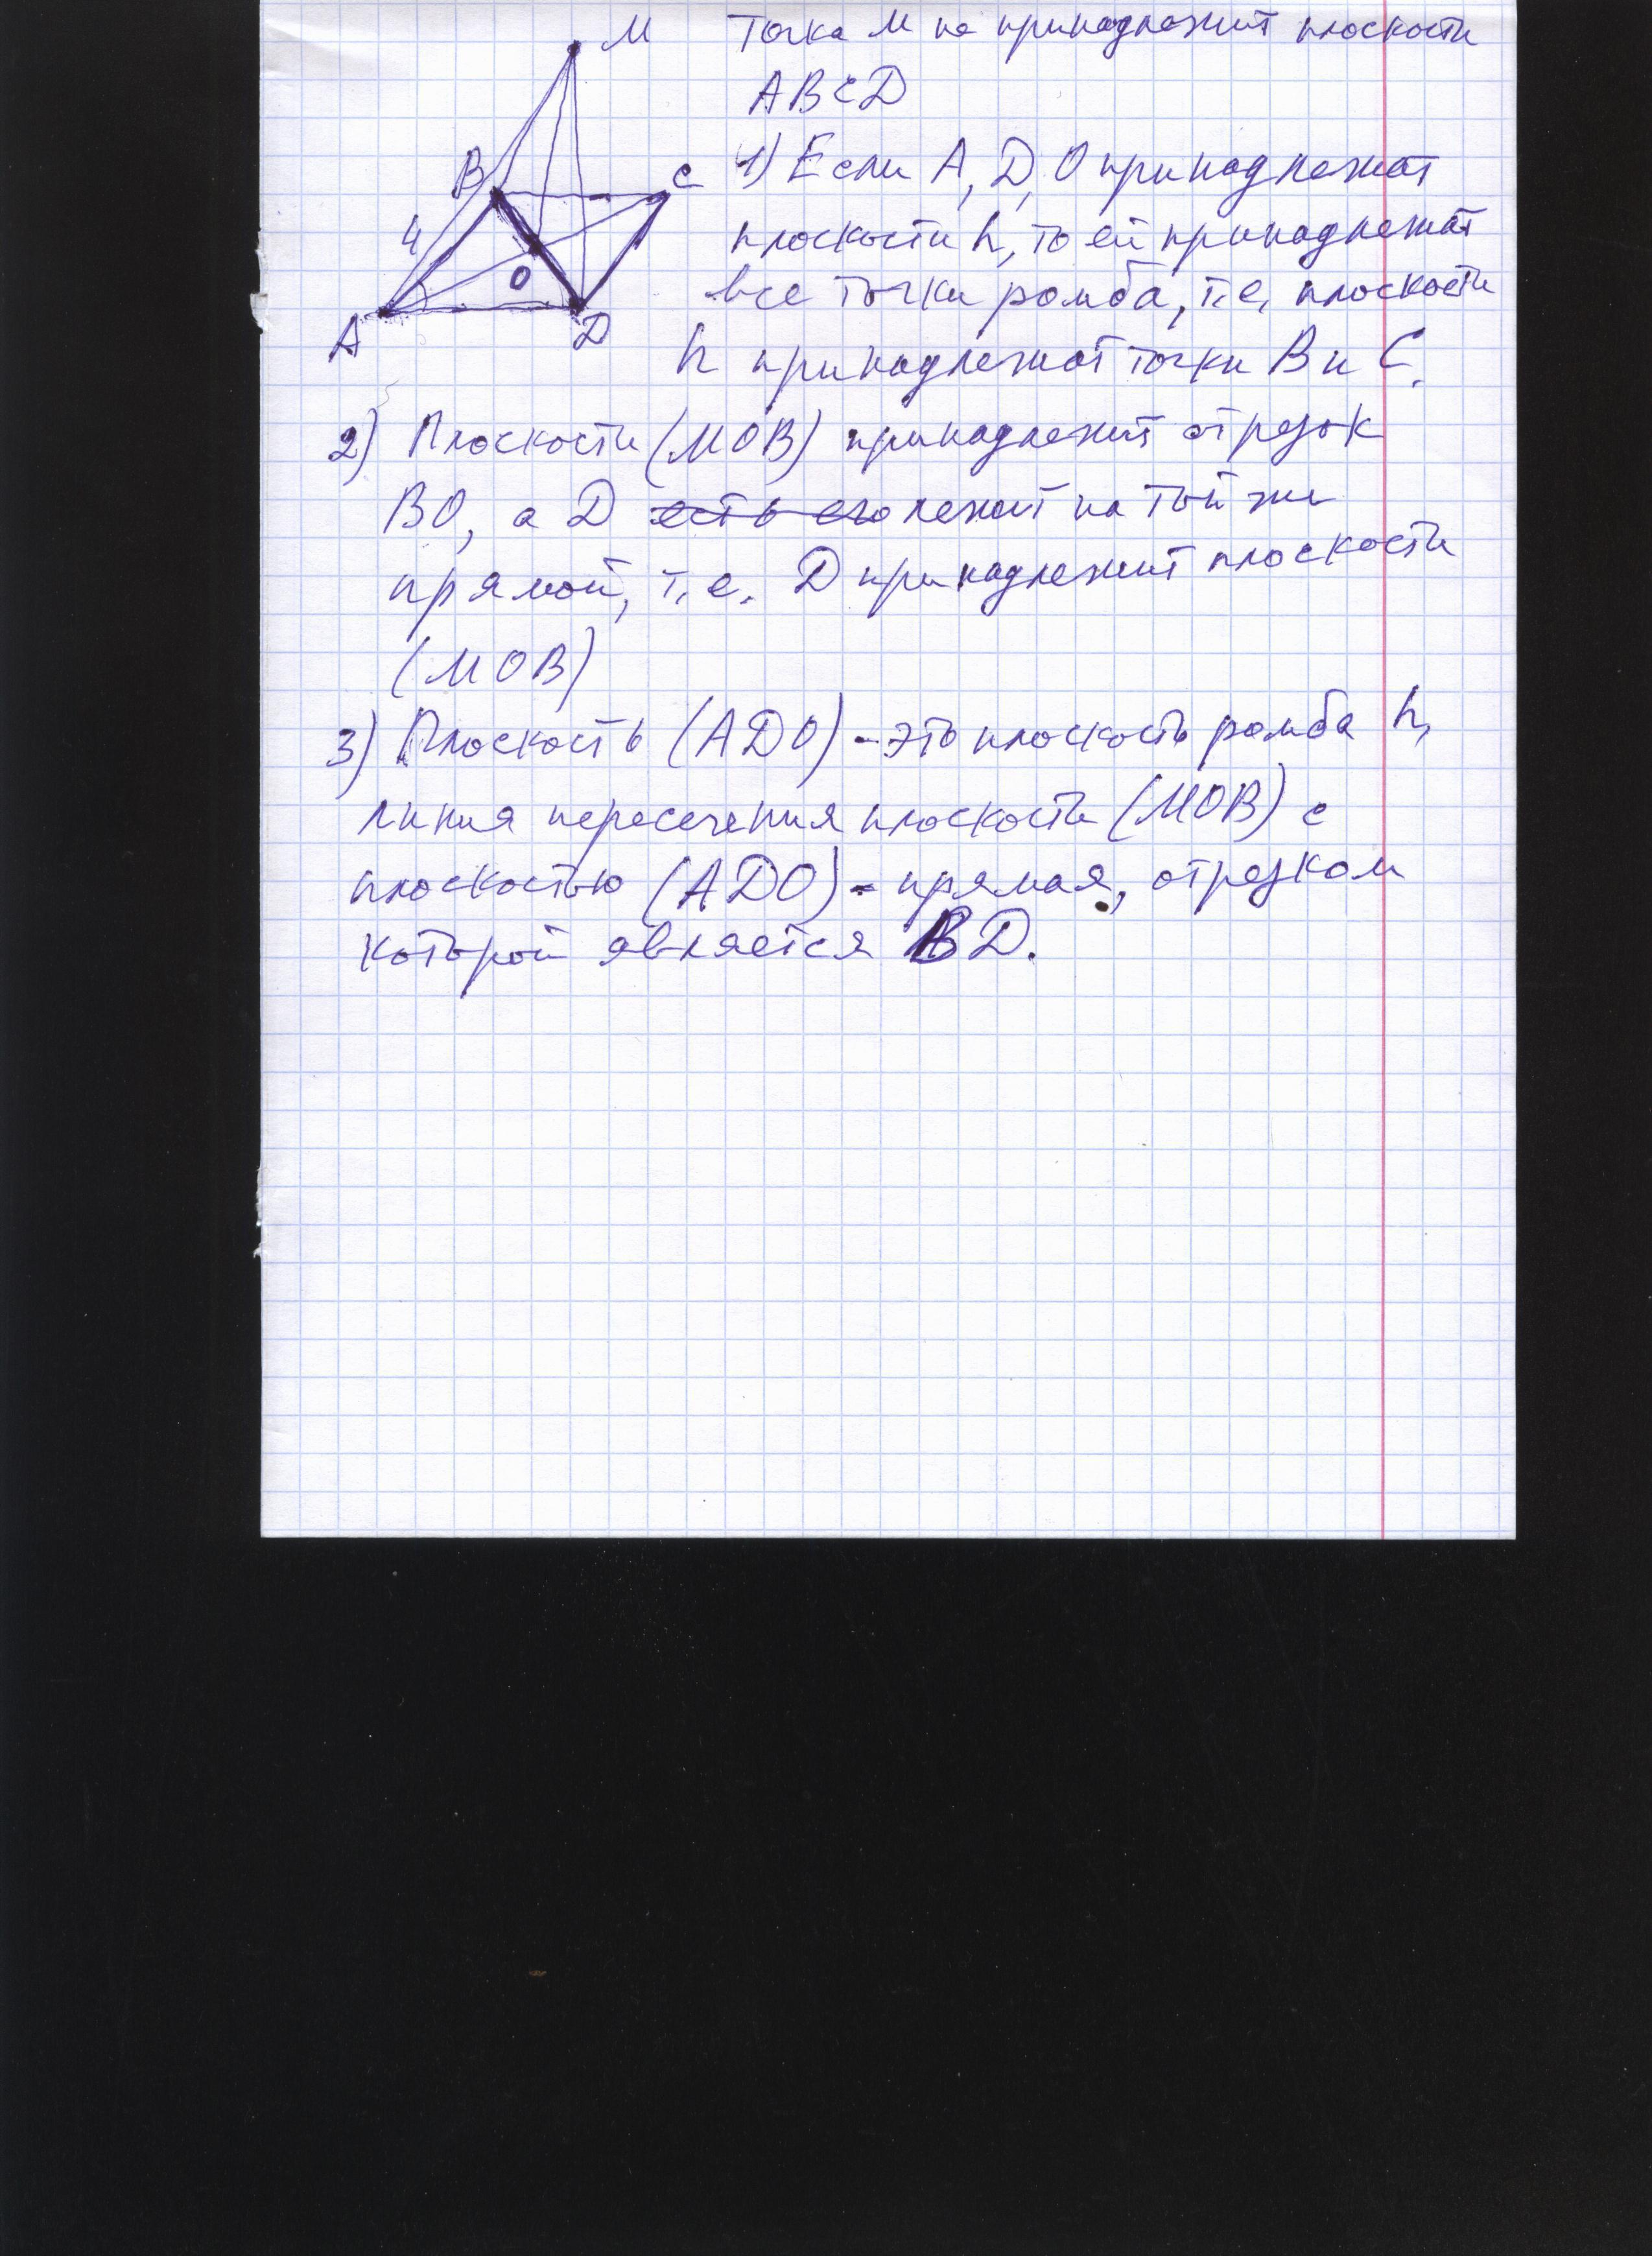 M
Точка М не принадлежит плоскости
ABCD
B
C
4
O
A
D
1) Если A, D, O принадлежат
плоскости h, то ей принадлежат
все точки ромба, т.е. плоскости
h принадлежат точки В и С.
2) Плоскости (MOB) принадлежит отрезок
BO, а D есть его лежит на той же
прямой, т.е. D принадлежит плоскости
(MOB)
3) Плоскость (ADO) - это плоскость ромба h,
линия пересечения плоскости (MOB) с
плоскостью (ADO) - прямая, отрезком
которой является BD.